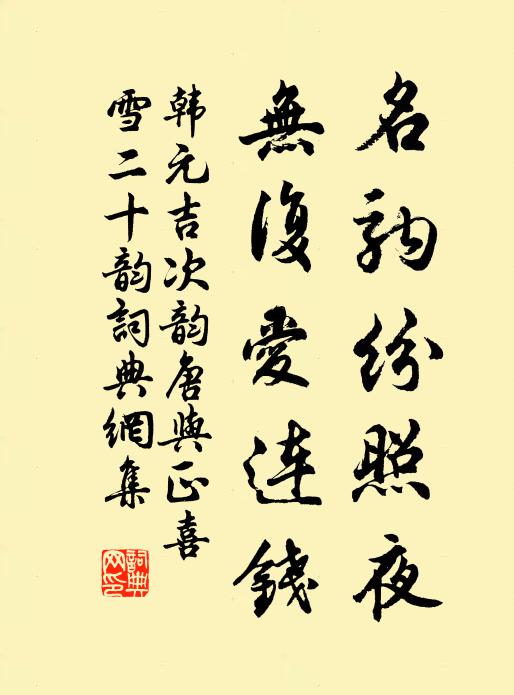 名駒紛照夜
無復愛連錢
韓元吉次韵唐與正喜
雪二十韵詞典網集
詞典网印